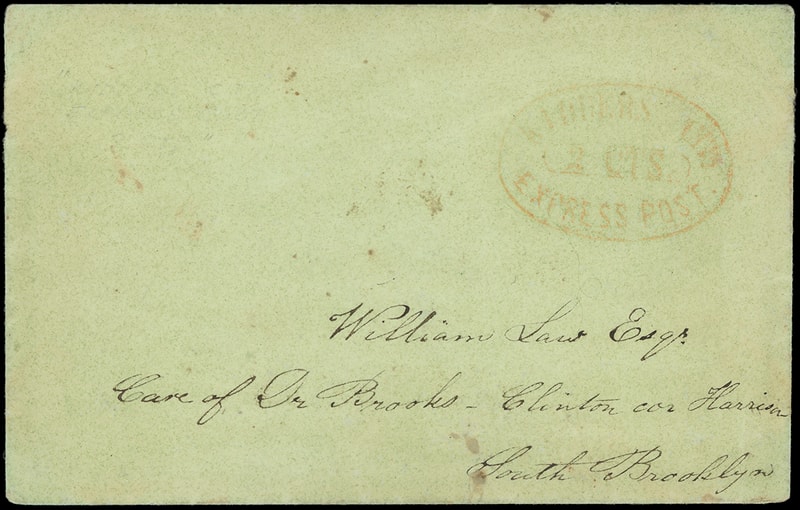 2 CTS.
EXPRESS POST
William Law Esqr.
Care of Dr Brooks - Clinton cor Harrison
South Brooklyn